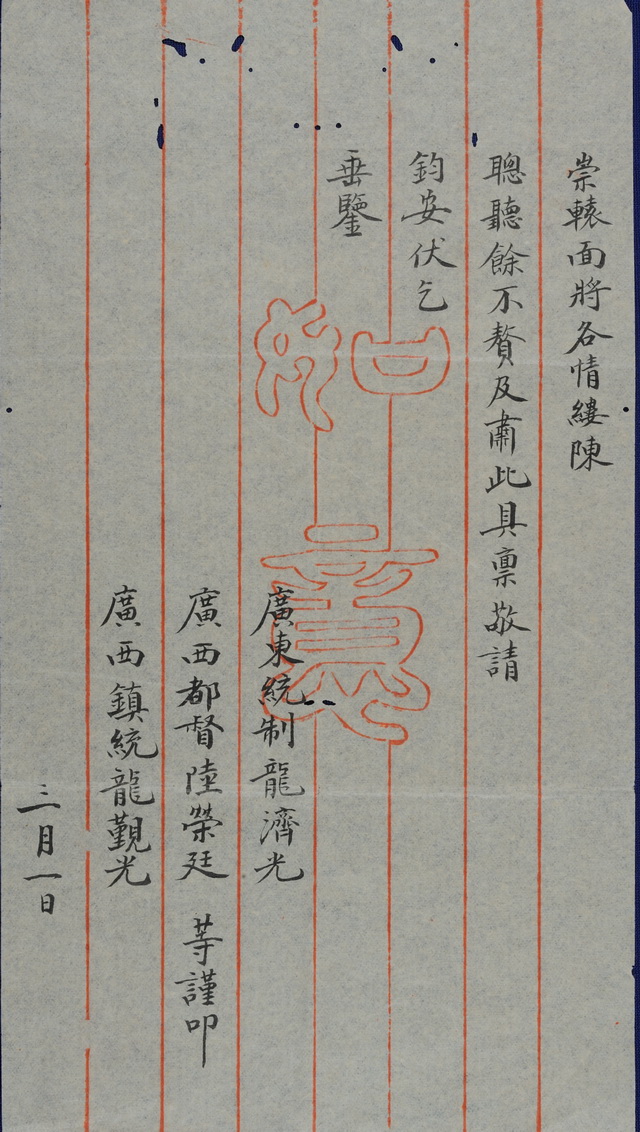 崇轅面將各情縷陳
聰聽餘不贅及肅此具禀敬請
鈞安伏乞
垂鑒
廣東統制龍濟光
廣西都督陸榮廷 等謹叩
廣西鎮統龍覲光
三月一日